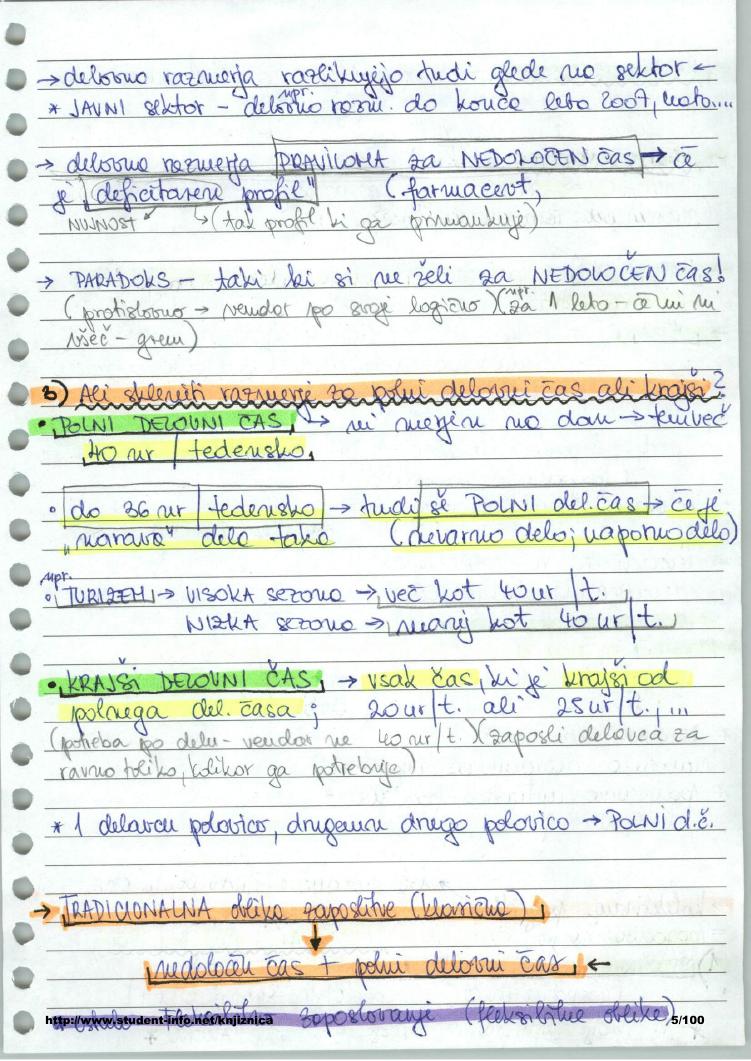 → delovna razmerja razlikujejo tudi glede na sektor ←
* JAVNI sektor – npr. delovno razm. do konca leta 2007, nato....
→ delovna razmerja PRAVILOMA za NEDOLOČEN čas → če
je „deficitaren profil" (farmacevt,
NUJNOST ↙ ↳ (tak profil ki ga primankuje)
→ PARADOKS – taki ki si ne želi za NEDOLOČEN čas!
(protislovno → vendar po svoje logično) (npr. za 1 leto – če mi ni
všeč – grem)
3) Ali skleniti razmerje za polni delovni čas ali krajši?
• POLNI DELOVNI ČAS ↳ ni merjen na dan → temveč
40 ur / tedensko
• do 36 ur / tedensko → tudi še POLNI del. čas → če je
„narava" dela taka (nevarno delo; naporno delo)
npr.
• TURIZEM → VISOKA sezona → več kot 40 ur / t.
NIZKA sezona → manj kot 40 ur / t.
• KRAJŠI DELOVNI ČAS → vsak čas, ki je krajši od
polnega del. časa ; 20 ur/t. ali 25 ur/t., ...
(potreba po delu – vendar ne 40 ur/t.) (zaposli delavca za
ravno toliko, kolikor ga potrebuje)
* 1 delavcu polovico, drugemu drugo polovico → POLNI d.č.
→ TRADICIONALNA oblika zaposlitve (klasična)
↓
nedoločen čas + polni delovni čas ←
zaposlovanje (fleksibilne oblike)
http://www.student-info.net/knjiznica 5/100